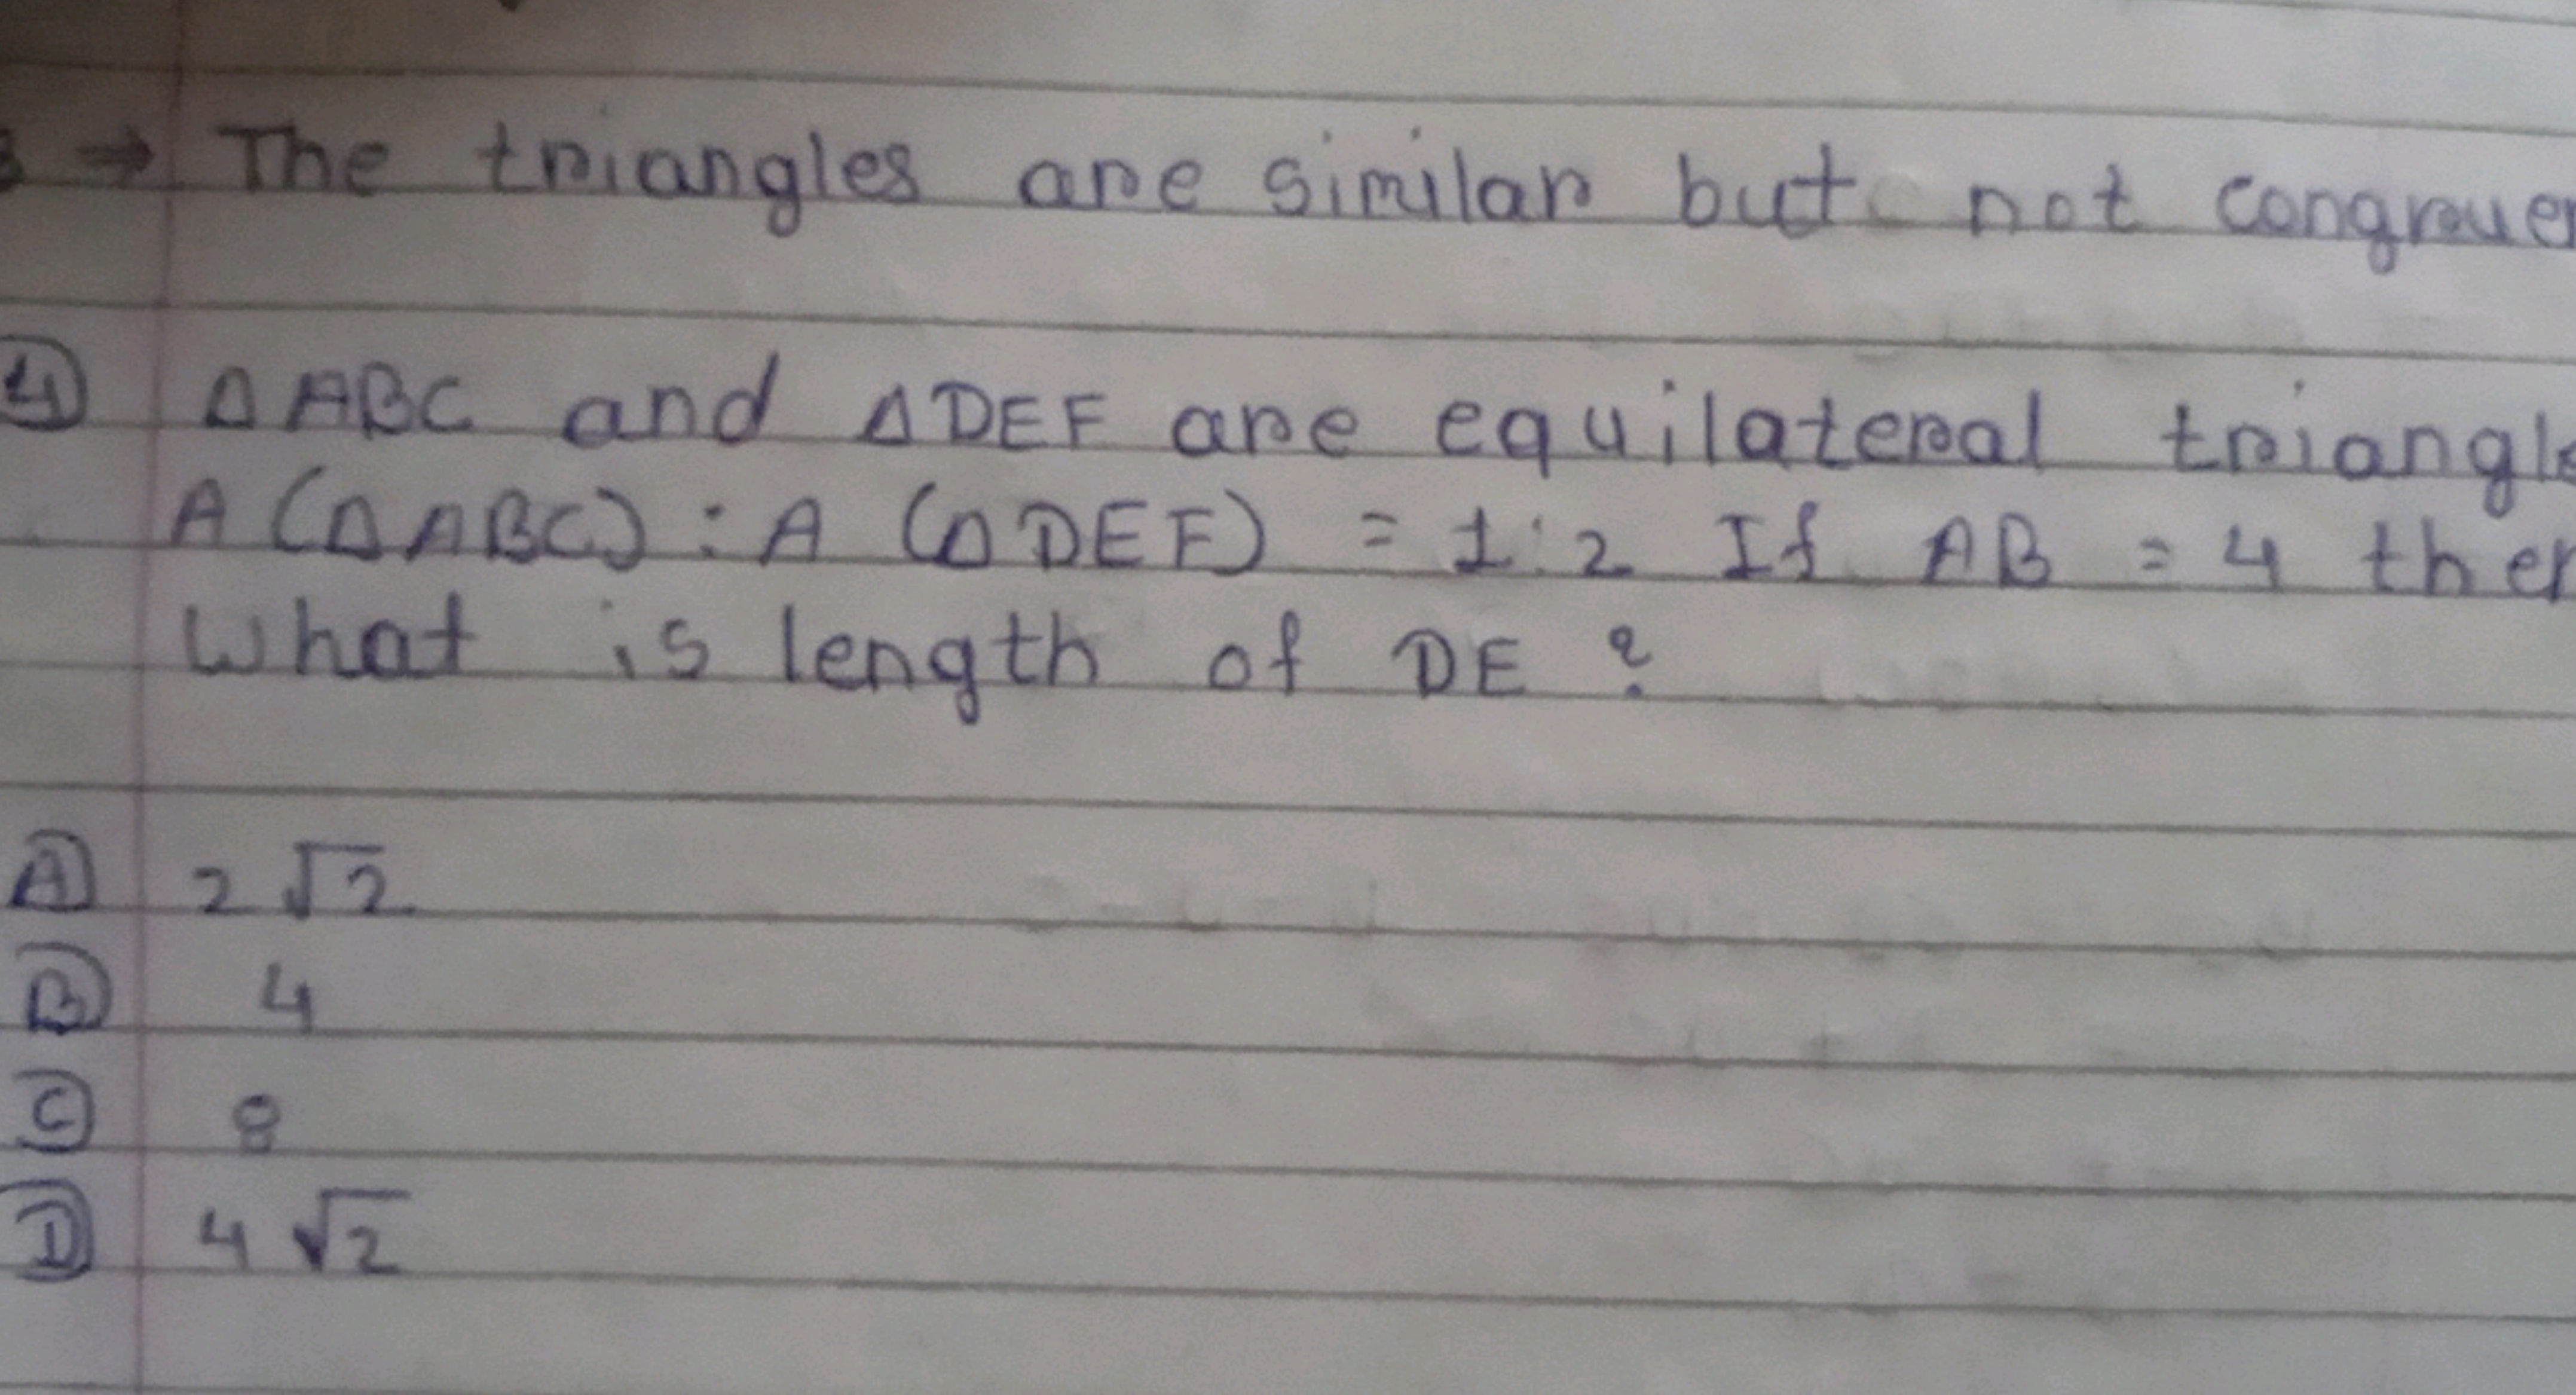 B ⇒ The triangles are similar but not congruen
④ ΔABC and ΔDEF are equilateral triangle
A (ΔABC) : A (ΔDEF) = 1:2 If AB = 4 then
What is length of DE ?
Ⓐ 2√2
Ⓑ 4
Ⓒ 8
Ⓓ 4√2